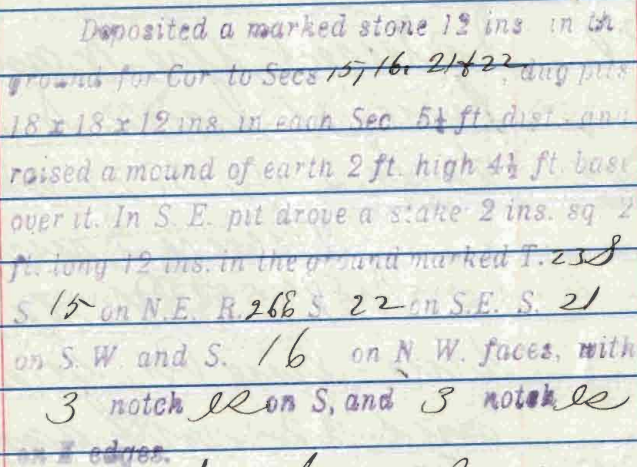 Deposited a marked stone 12 ins in th
ground for Cor to Secs 15, 16, 21 & 22, dug pits
18 x 18 x 12 ins. in each Sec 5½ ft. dist. and
raised a mound of earth 2 ft. high 4½ ft. base
over it. In S. E. pit drove a stake 2 ins. sq 2
ft. long 12 ins. in the ground marked T. 23 S
S. 15 on N.E. R. 26 E S. 22 on S.E. S. 21
on S. W. and S. 16 on N. W. faces, with
3 notch es on S, and 3 notch es
on E edges.